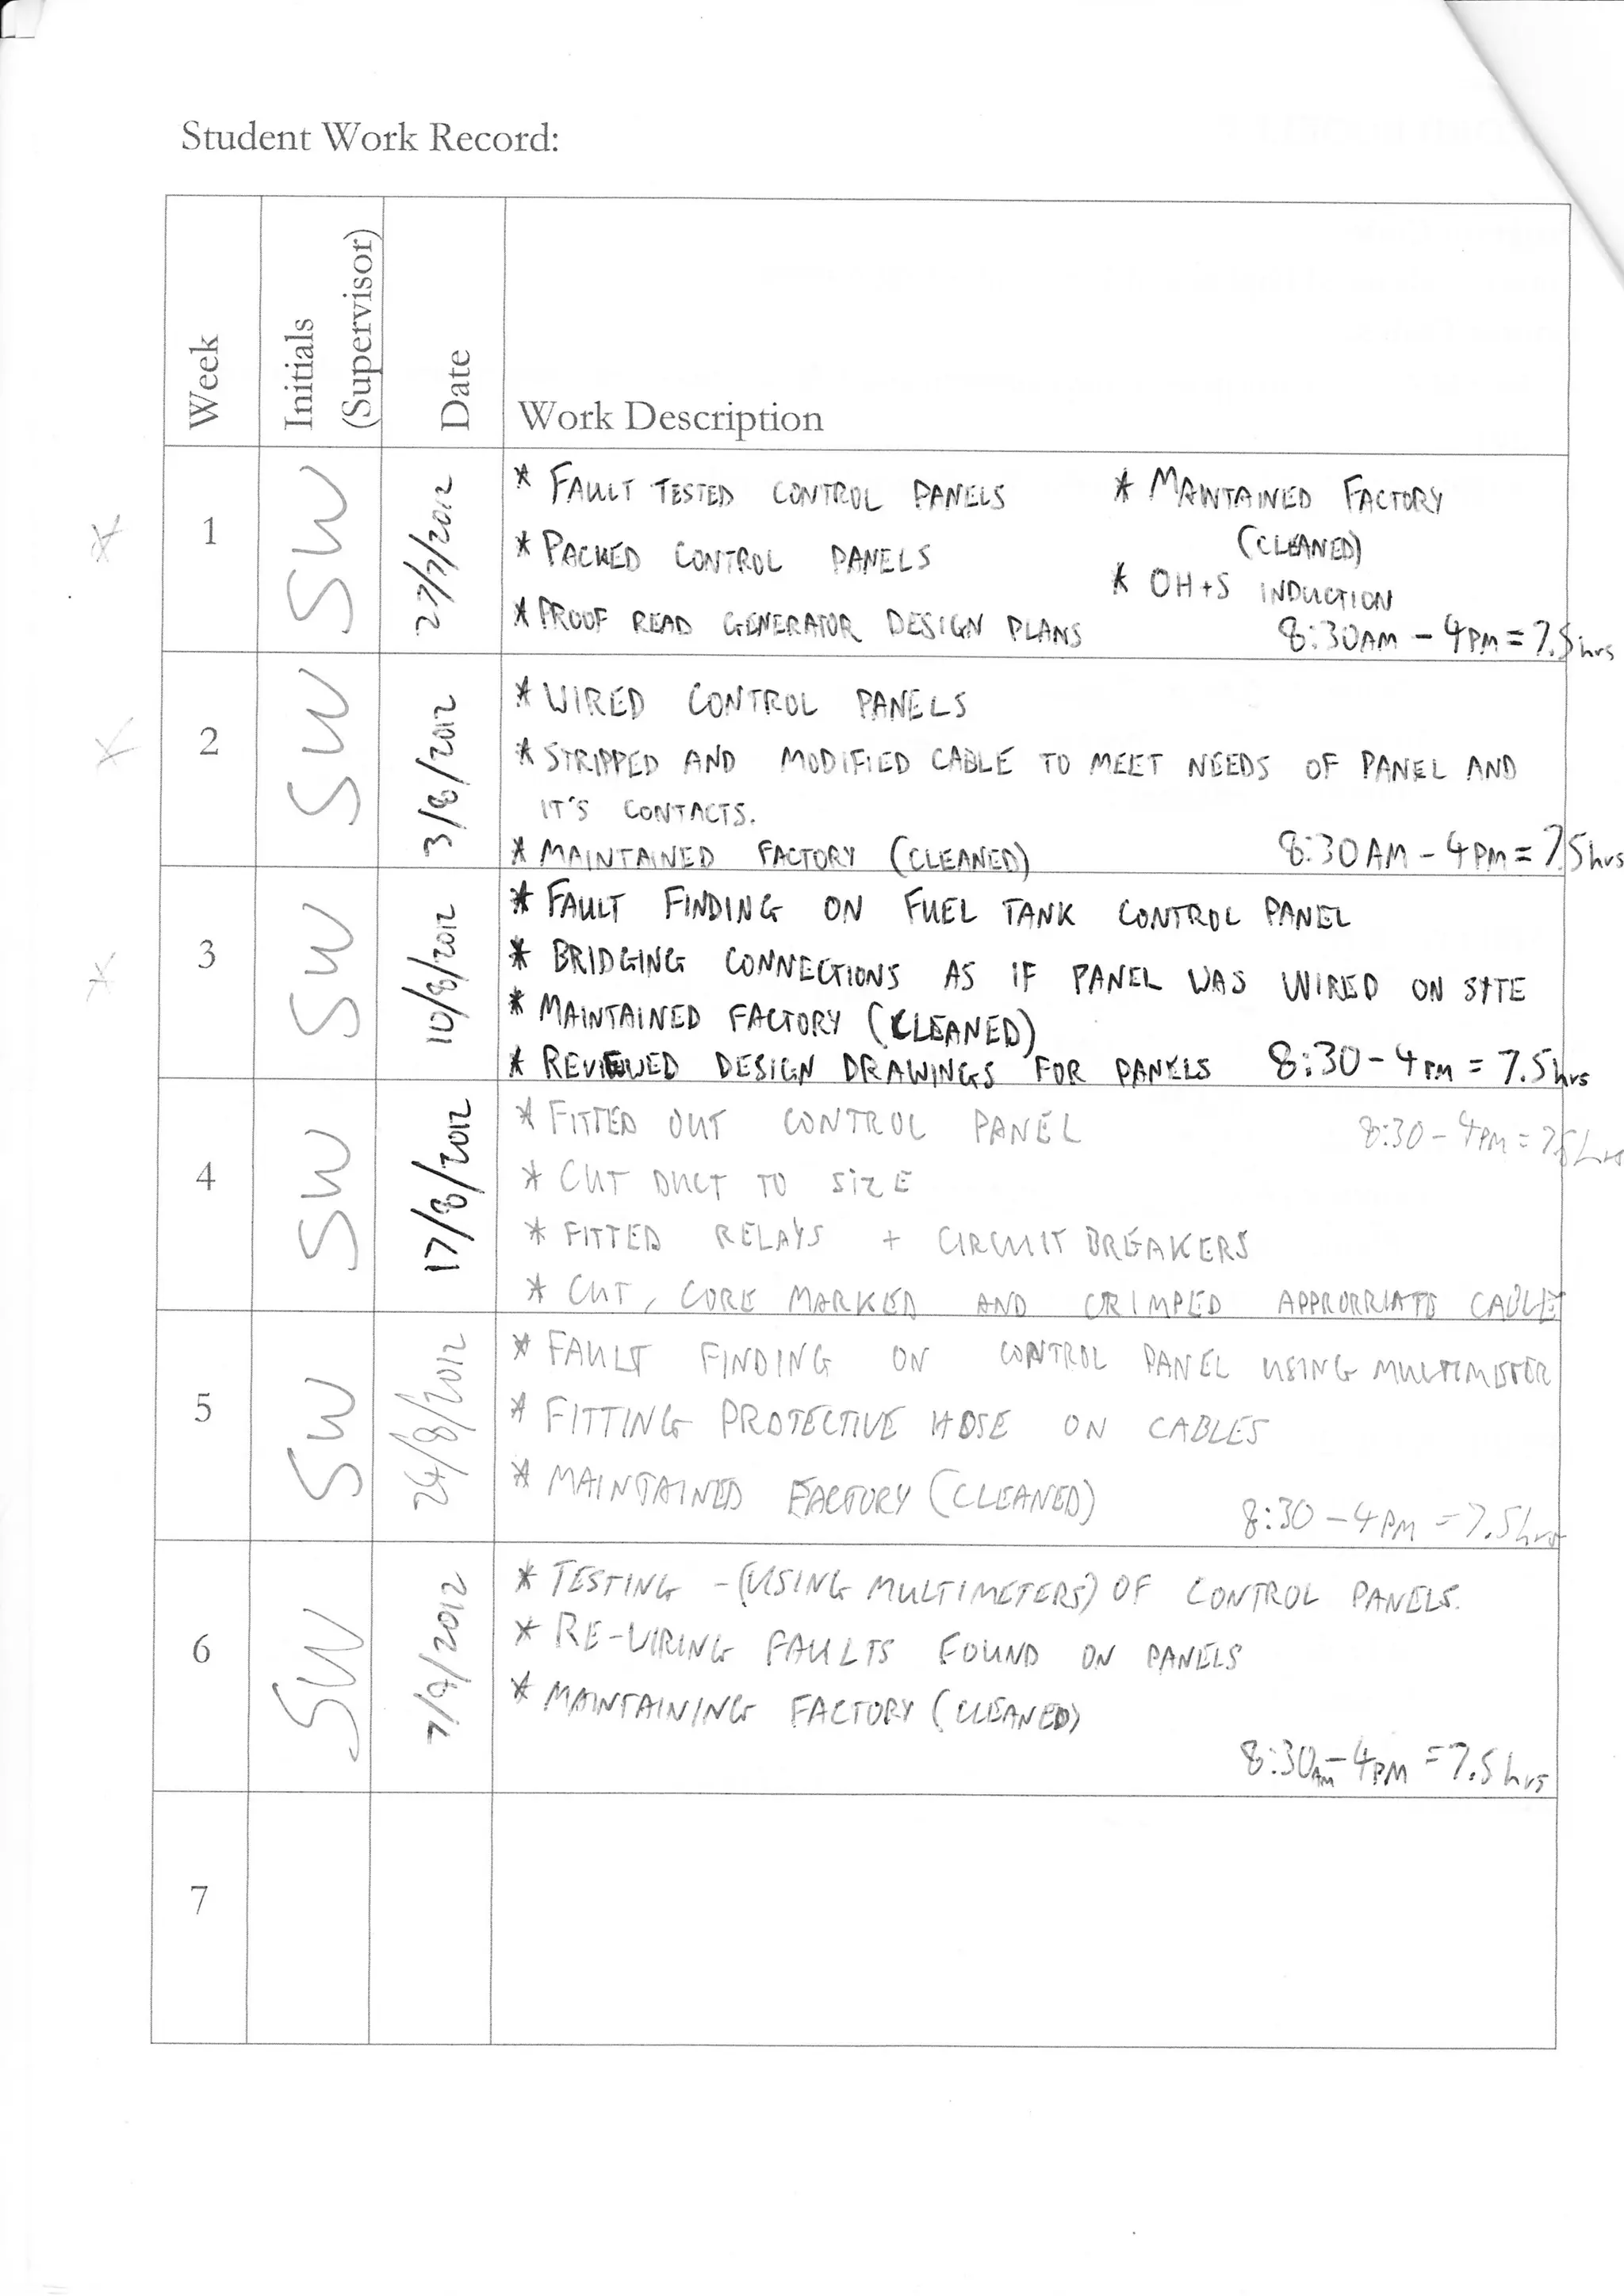 Student Work Record:
Week
Initials
(Supervisor)
Date
Work Description
1
SW
27/7/2012
* FAULT TESTED CONTROL PANELS
* PACKED CONTROL PANELS
* PROOF READ GENERATOR DESIGN PLANS
* MAINTAINED FACTORY
(CLEANED)
* OH+S INDUCTION
8:30AM - 4PM = 7.5hrs
2
SW
3/8/2012
* WIRED CONTROL PANELS
* STRIPPED AND MODIFIED CABLE TO MEET NEEDS OF PANEL AND
IT'S CONTACTS.
* MAINTAINED FACTORY (CLEANED)
8:30AM - 4PM = 7.5hrs
3
SW
10/8/2012
* FAULT FINDING ON FUEL TANK CONTROL PANEL
* BRIDGING CONNECTIONS AS IF PANEL WAS WIRED ON SITE
* MAINTAINED FACTORY (CLEANED)
* REVIEWED DESIGN DRAWINGS FOR PANELS 8:30-4PM = 7.5hrs
4
SW
17/8/2012
* FITTED OUT CONTROL PANEL 8:30-4PM = 7.5hrs
* CUT DUCT TO SIZE
* FITTED RELAYS + CIRCUIT BREAKERS
* CUT, CORE MARKED AND CRIMPED APPRORRIATE CABLE
5
SW
24/8/2012
* FAULT FINDING ON CONTROL PANEL USING MULTIMETER
* FITTING PROTECTIVE HOSE ON CABLES
* MAINTAINED FACTORY (CLEANED)
8:30-4PM = 7.5hrs
6
SW
7/9/2012
* TESTING - (USING MULTIMETERS) OF CONTROL PANELS.
* RE-WIRING FAULTS FOUND ON PANELS
* MAINTAINING FACTORY (CLEANED)
8:30AM-4PM = 7.5hrs
7